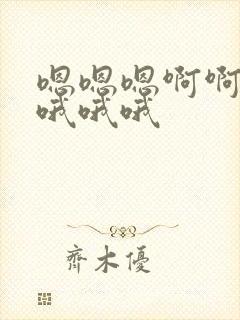 嗯嗯嗯啊啊
哦哦哦
齊木優